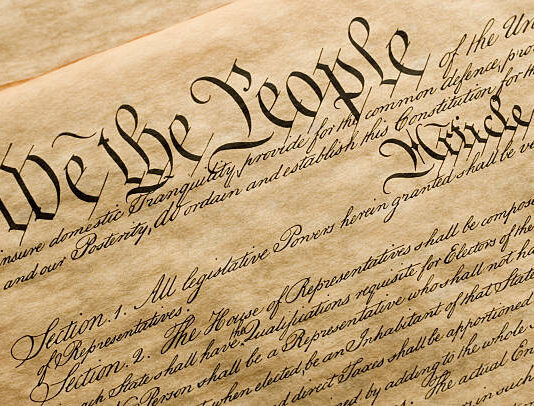 We the People of the Un
insure domestic Tranquility, provide for the common defence, pro
and our Posterity, do ordain and establish this Constitution for th
Article
Section. 1. All legislative Powers herein granted shall be ve
of Representatives.
Section. 2. The House of Representatives shall be compos
each State shall have the Qualifications requisite for Electors of the
No Person shall be a Representative who shall not ha
not when elected, be an Inhabitant of that State
and direct Taxes shall be apportioned
ned by adding to the whole
s. The actual En
in such